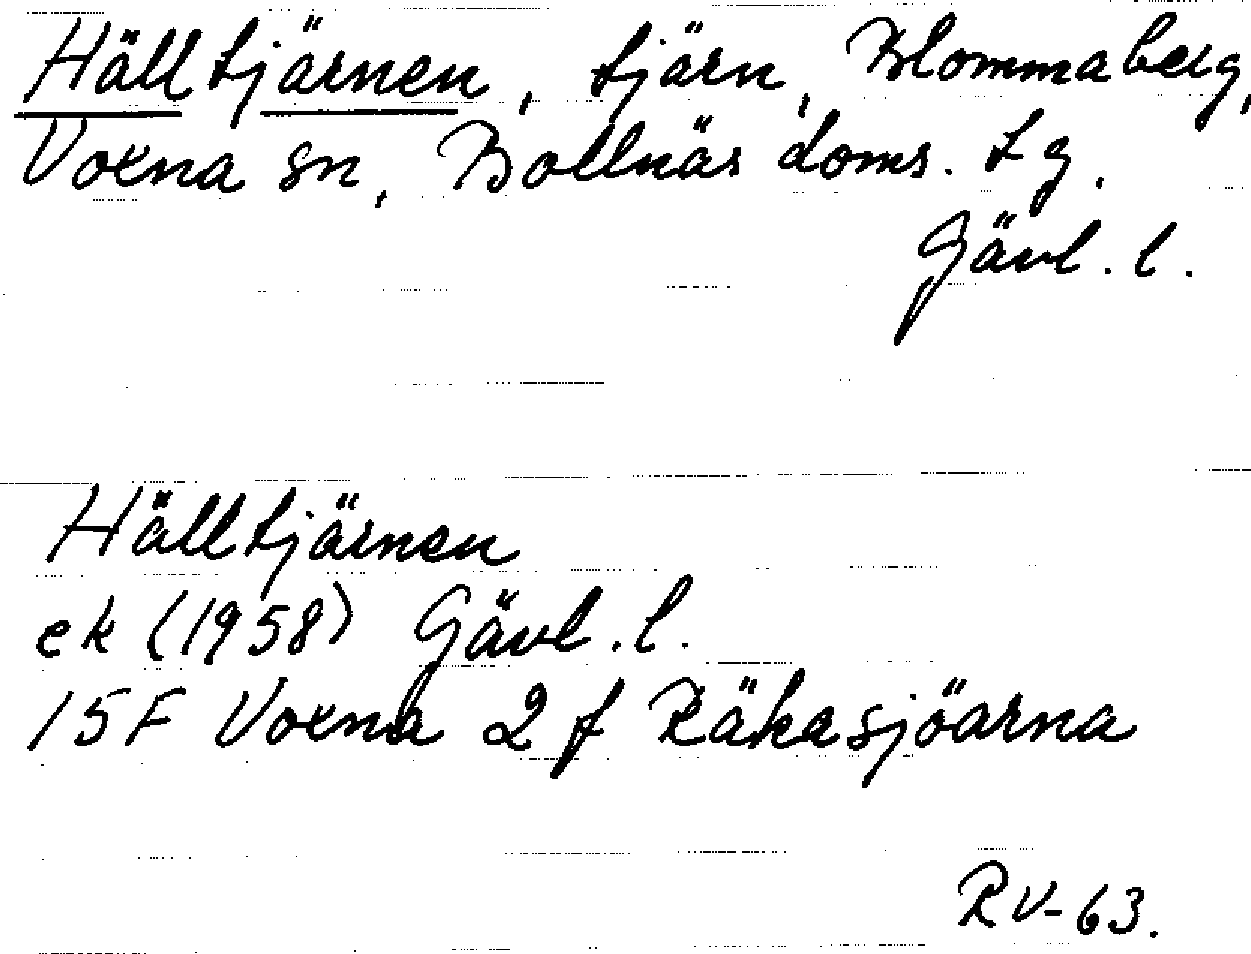 Hälltjärnen, tjärn, Blommaberg,
Voxna sn, Bollnäs doms. tg,
Gävl. l.
Hälltjärnen
ek (1958) Gävl. l.
15F Voxna 2 f Räkasjöarna
RV-63.